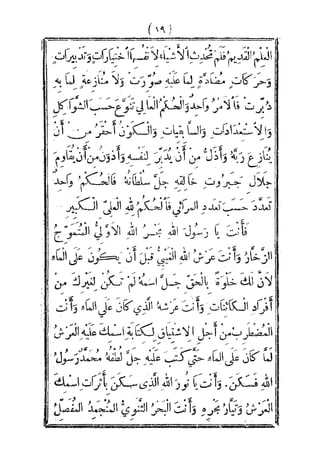 ( ١٩ )
العلم القديم فلم تحدث الأشياء لأنفسها اختيارات وتدبيرات
وحركات مضادة لما عليه صورت ولا منازعة لما به
دبرت فالأمر واحد والحكم العالي تنوع حسب الشواكل
والاستعدادات والسابقيات والكون أحقر من أن
ينازع ربه وأذل من أن يدبر لنفسه وأدون من أن يقاوم
جلال جبروت خالقه جل سلطانه فالحكم واحد
تعدد حسب تعدد المرائي فالحكم لله العلي الكبير
فأنت يا رسول الله بحر الله الأولي المتموج
الزخار وأنت عرش الله الغيبي قبل أن يكون على الماء
لأن لك خلوة بالحق جل اسمه لم تكن لغيرك من
أفراد الكائنات وأنت عرشه الذي كان على الماء وأنت
المضطرب من أجل الاشتياق لكتابة اسمك عليه العرش
لما كان على الماء حتى كتب عليه جل لطفه محمد رسول
الله فسكن. وأنت يا نور الله الذي سكن بأثرات اسمك
العرش وتيار بحره وأنت البحر النوي المنجمد المفصل